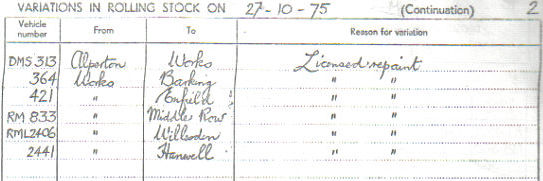 VARIATIONS IN ROLLING STOCK ON 27-10-75 (Continuation) 2
Vehicle number From To Reason for variation
DMS 313 Alperton Works Licensed repaint
364 Works Barking " "
421 " Enfield " "
RM 833 " Middle Row " "
RML2406 " Willesden " "
2441 " Hanwell " "